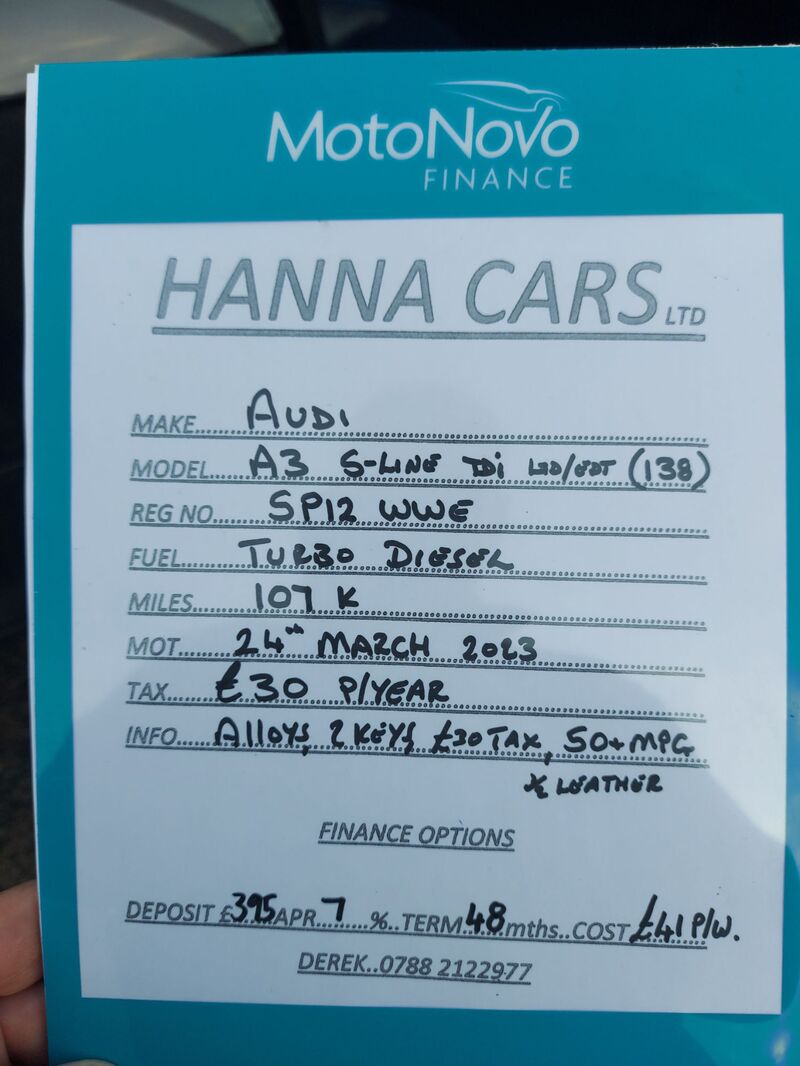 MotoNovo
FINANCE
HANNA CARS LTD
MAKE...... AUDI
MODEL...... A3 S-LINE TDi (138)
REG NO...... SP12 WWE
FUEL...... TURBO DIESEL
MILES...... 107 K
MOT...... 24TH MARCH 2023
TAX...... £30 P/YEAR
INFO...... Alloys, 2 KEYS, £30 TAX, 50+ MPG
½ LEATHER
FINANCE OPTIONS
DEPOSIT £395 APR 7 %.. TERM 48 mths.. COST £41 P/W.
DEREK..0788 2122977